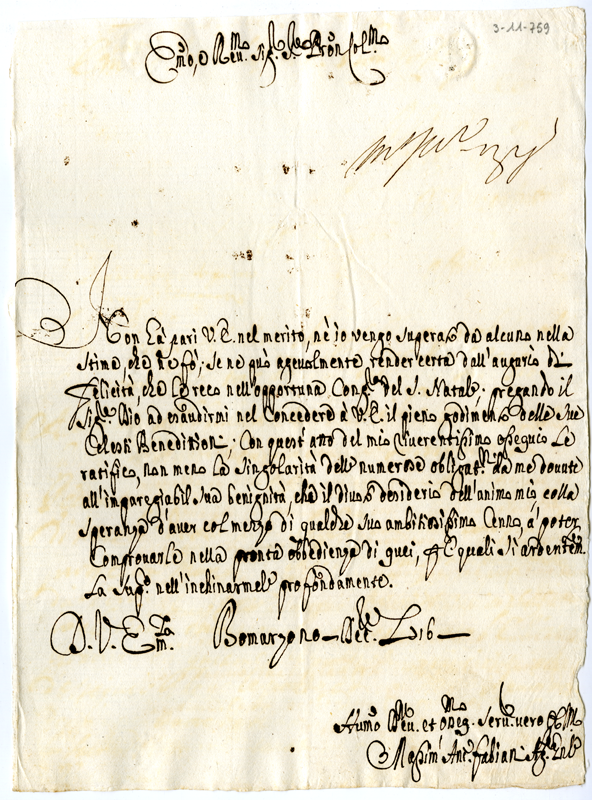 3-11-759
Emo, e Reu.mo Sig. Sre Pron Col.mo
Non hà pari V.E. nel merito, nè io vengo superato da alcuno nella
stima, che ne fò; Se ne può agevolmente render certa dall'augurio di
Felicità, che le reco nell'opportuna Cong.ra del S. Natale; pregando il
Sig.re Dio ad esaudirmi nel concedere à V.E. il pieno godimento delle sue
Celesti Benedittioni; Con quest'atto del mio riverentissimo ossequio le
ratifico, non meno la singolarità delle numerose obligat.ni da me dovute
all'impareggiabil sua benignità, che il divoto desiderio dell'animo mio colla
speranza d'aver col mezzo di qualche suo ambitissimo Cenno à poter
Comprouarle nella pronta obbedienza di quei, p. E quali si ardentem.
La Sup.co nell'inchinarmele profondamente.
D. V. Em.za Bomarzo Xbre 1716
Humo Deu. et Obbg. Seru. vero
Massim' Ant. Fabian